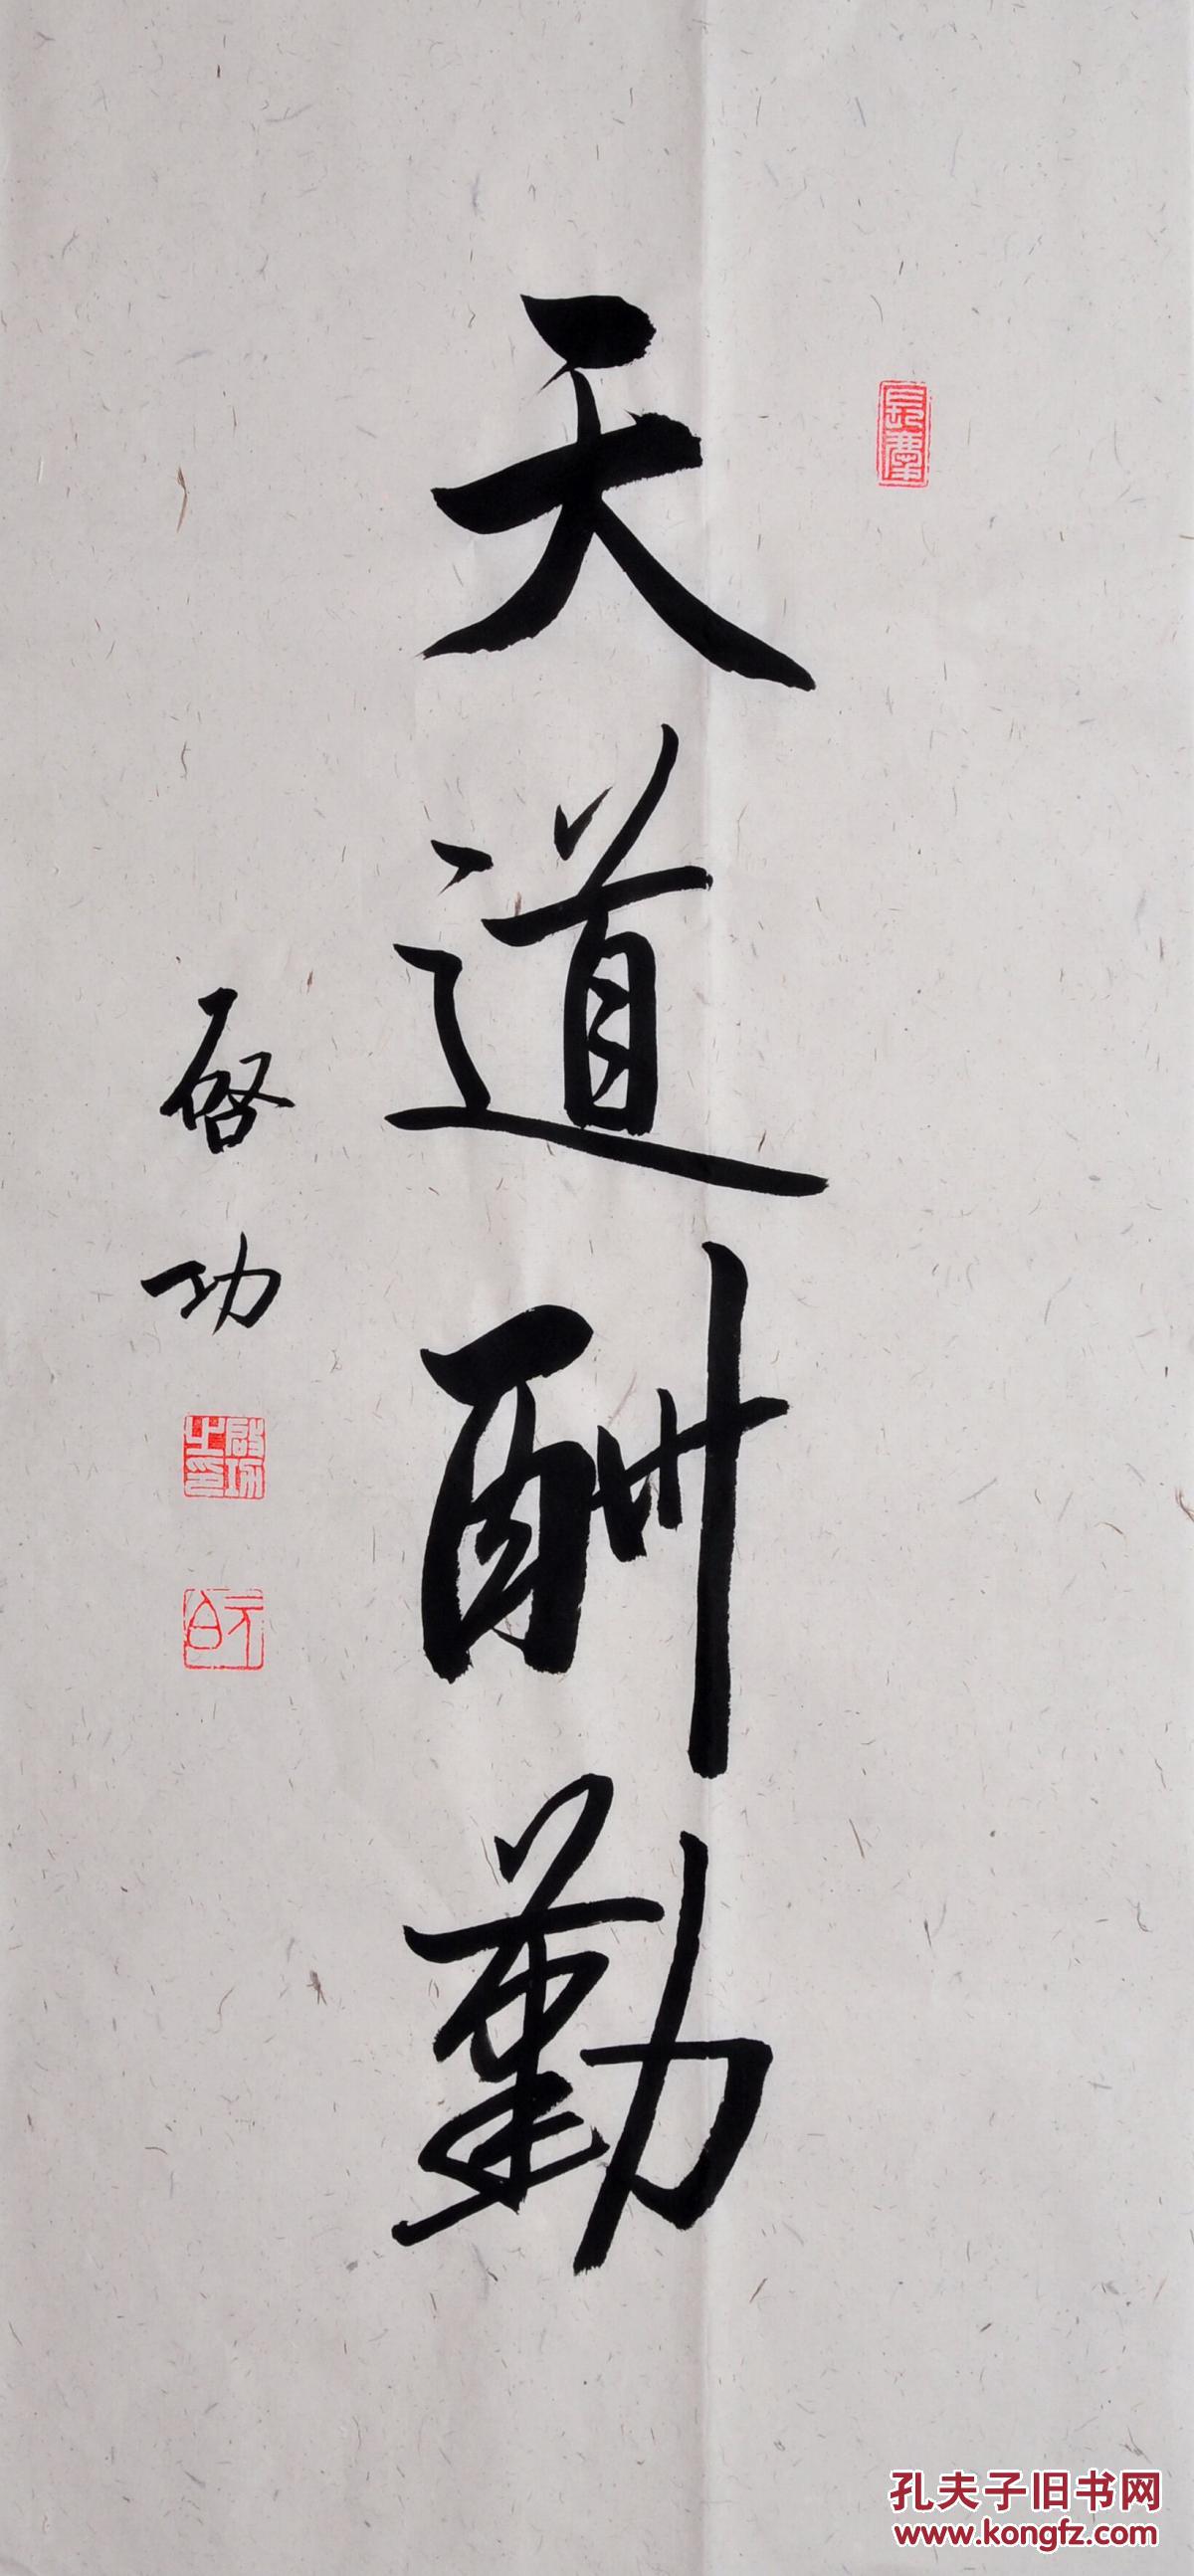 天道酬勤
启功
启功之印
元白
孔夫子旧书网
www.kongfz.com